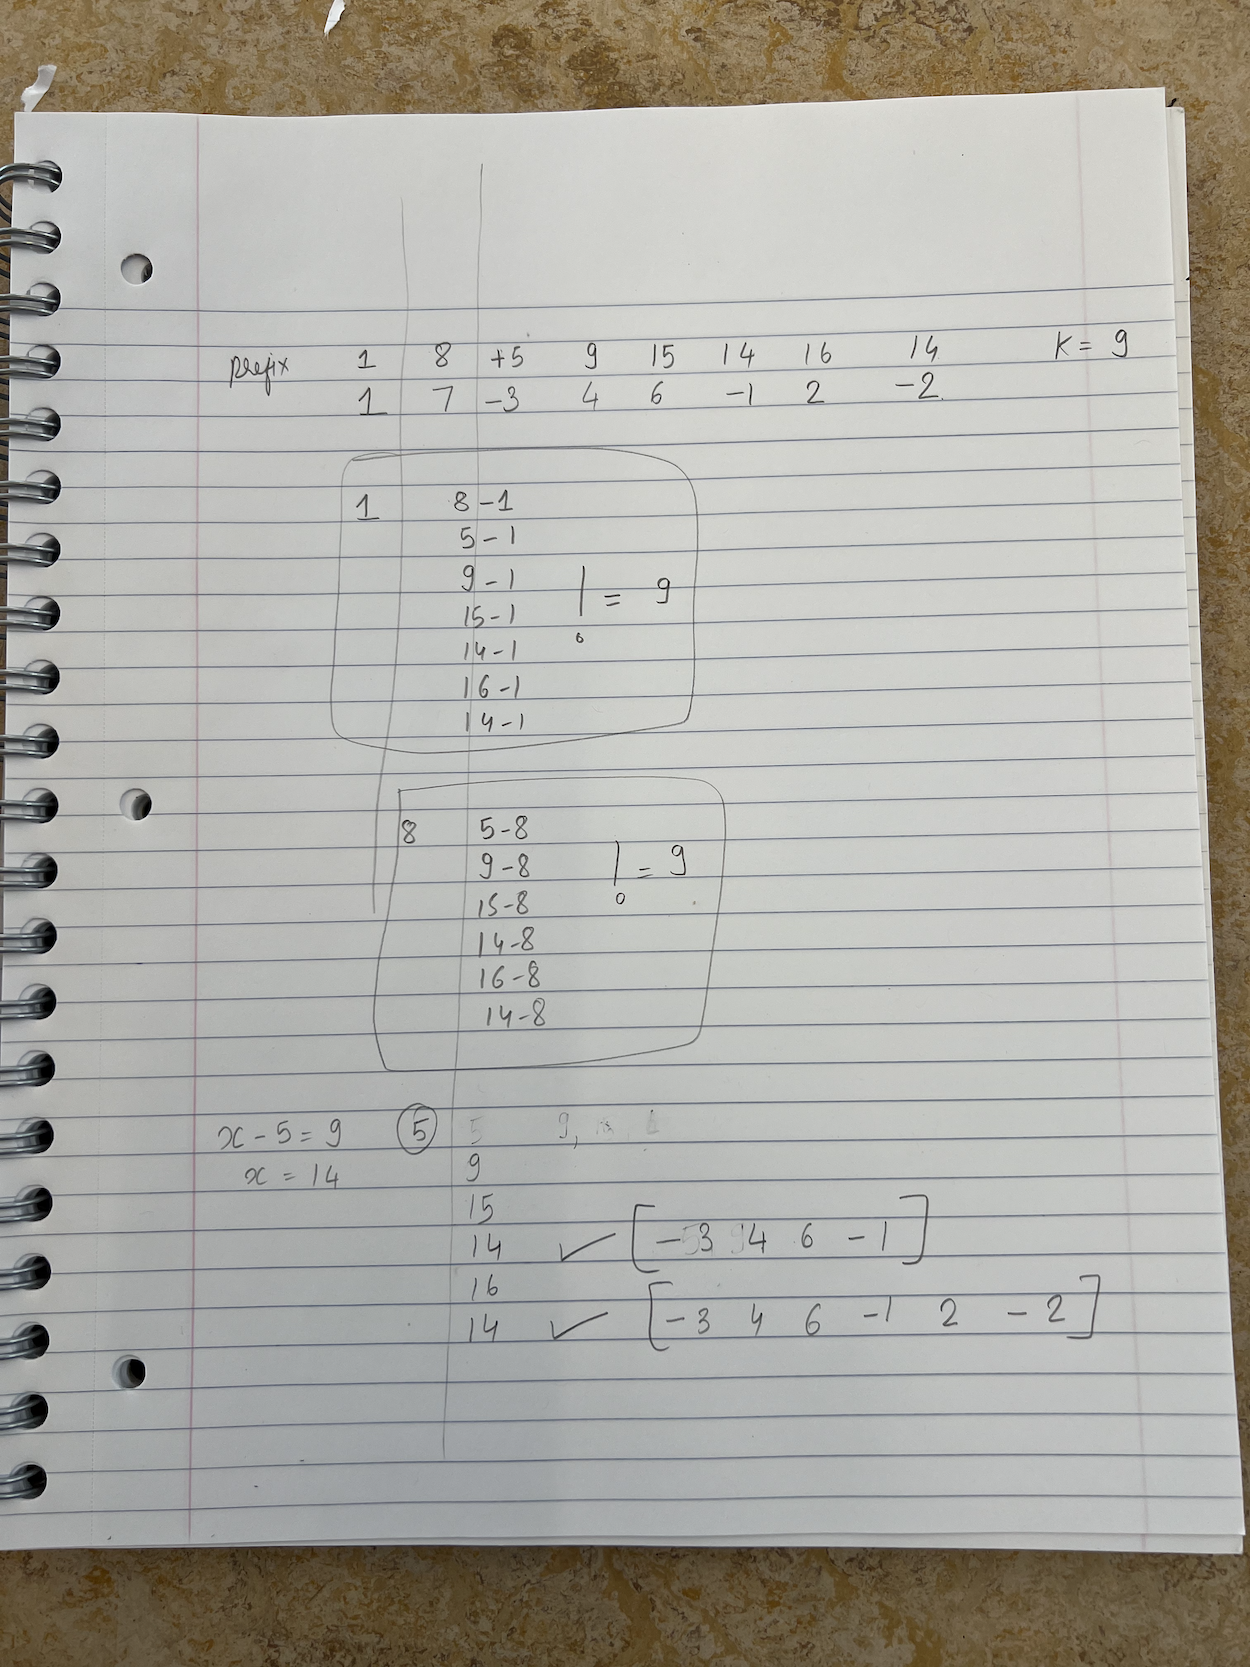 prefix 1 8 +5 9 15 14 16 14 K = 9
1 7 -3 4 6 -1 2 -2
1 8-1
5-1
9-1
15-1 != 9
14-1
16-1
14-1
8 5-8
9-8 != 9
15-8
14-8
16-8
14-8
x - 5 = 9 5 5 9,
x = 14 9
15
14 ✓ [-3 4 6 -1]
16
14 ✓ [-3 4 6 -1 2 -2]